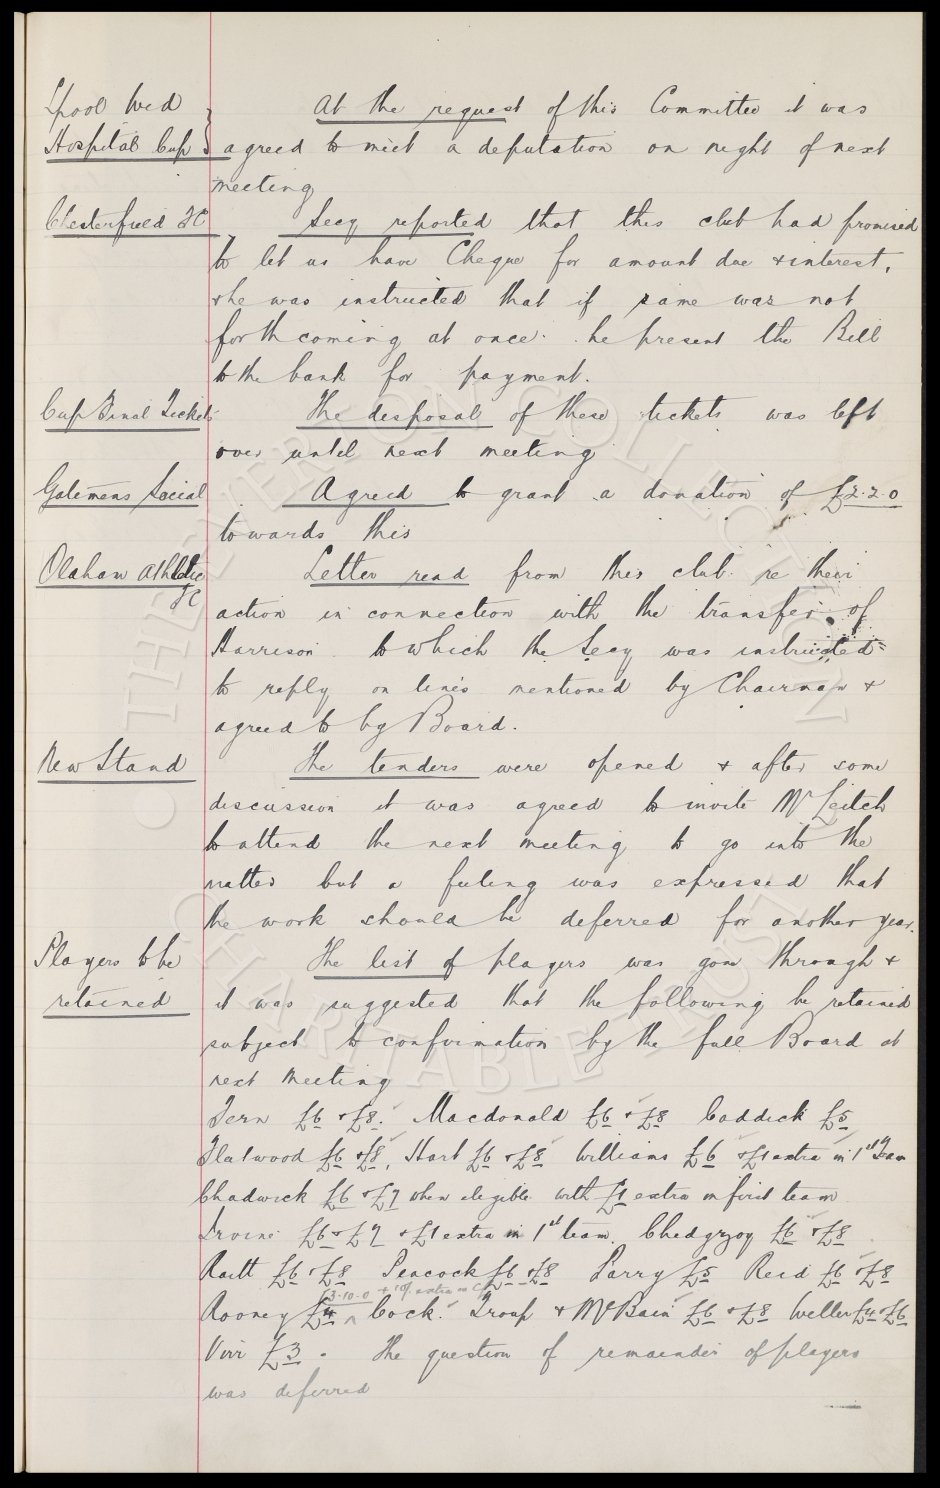 L'pool Wed
Hospital Cup
At the request of this Committee it was
agreed to meet a deputation on night of next
meeting
Chesterfield FC
Secy reported that this club had promised
to let us have Cheque for amount due & interest,
& he was instructed that if same was not
forthcoming at once he present the Bill
to the bank for payment.
Cup Final Tickets
The disposal of these tickets was left
over until next meeting
Gatemens Social
Agreed to grant a donation of £2.2.0
towards this
Oldham Athletic
FC
Letter read from this club re their
action in connection with the transfer of
Harrison to which the Secy was instructed
to reply on lines mentioned by Chairman &
agreed to by Board.
New Stand
The tenders were opened & after some
discussion it was agreed to invite Mr Leitch
to attend the next meeting to go into the
matter but a feeling was expressed that
the work should be deferred for another year.
Players to be
retained
The list of players was gone through &
it was suggested that the following be retained
subject to confirmation by the full Board at
next meeting
Fern £6 & £8. Macdonald £6 & £8 Caddick £5
Fleetwood £6 & £8, Hart £6 & £8 Williams £6 & £1 extra in 1st Team
Chadwick £6 & £7 when eligible with £1 extra in first team
Irvine £6 & £7 & £1 extra in 1st team. Chedgzoy £6 & £8
Raitt £6 & £8 Peacock £6 & £8 Parry £5 Reid £6 & £8
£3-10-0 + 10/- extra in
Rooney £4 Cock Troup & McBain £6 & £8 Weller £4 & £6
Virr £3. The question of remainder of players
was deferred
THE EVERTON COLLECTION
CHARITABLE TRUST